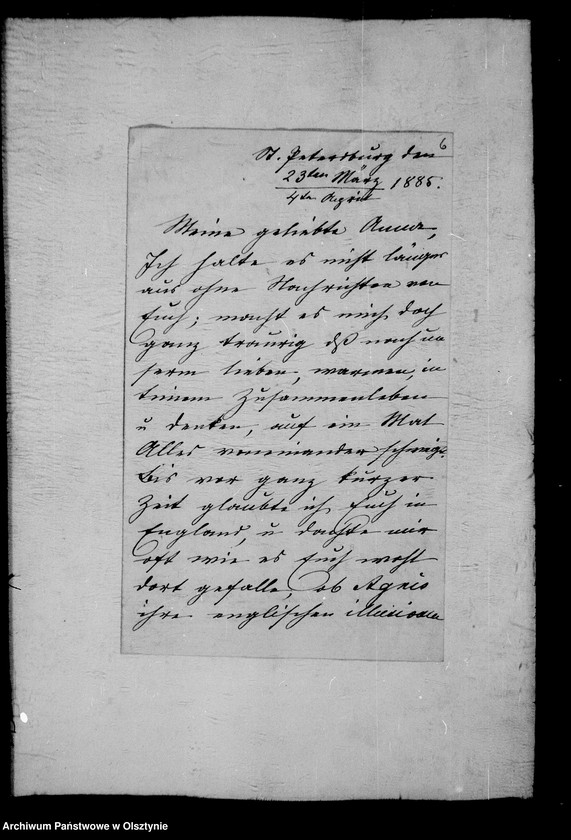 6
St. Petersburg den
23ten März 1885.
4te April
Meine geliebte Anna,
Ich halte es nicht länger
aus ohne Nachrichten von
Euch; macht es mich doch
ganz traurig dß nach un
serm lieben, warmen, in
timem Zusammenleben
u denken, auf ein Mal
Alles voneinander schweigt.
Bis vor ganz kurzer
Zeit glaubte ich Euch in
England, u dachte mir
oft wie es Euch wohl
dort gefalle, ob Agnes
ihre englischen illusionen
Archiwum Państwowe w Olsztynie